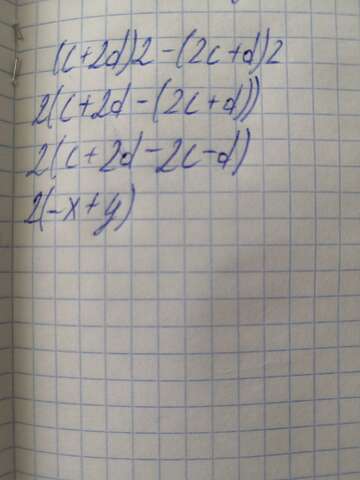 (c+2d)2-(2c+d)2
2(c+2d-(2c+d))
2(c+2d-2c-d)
2(-x+y)